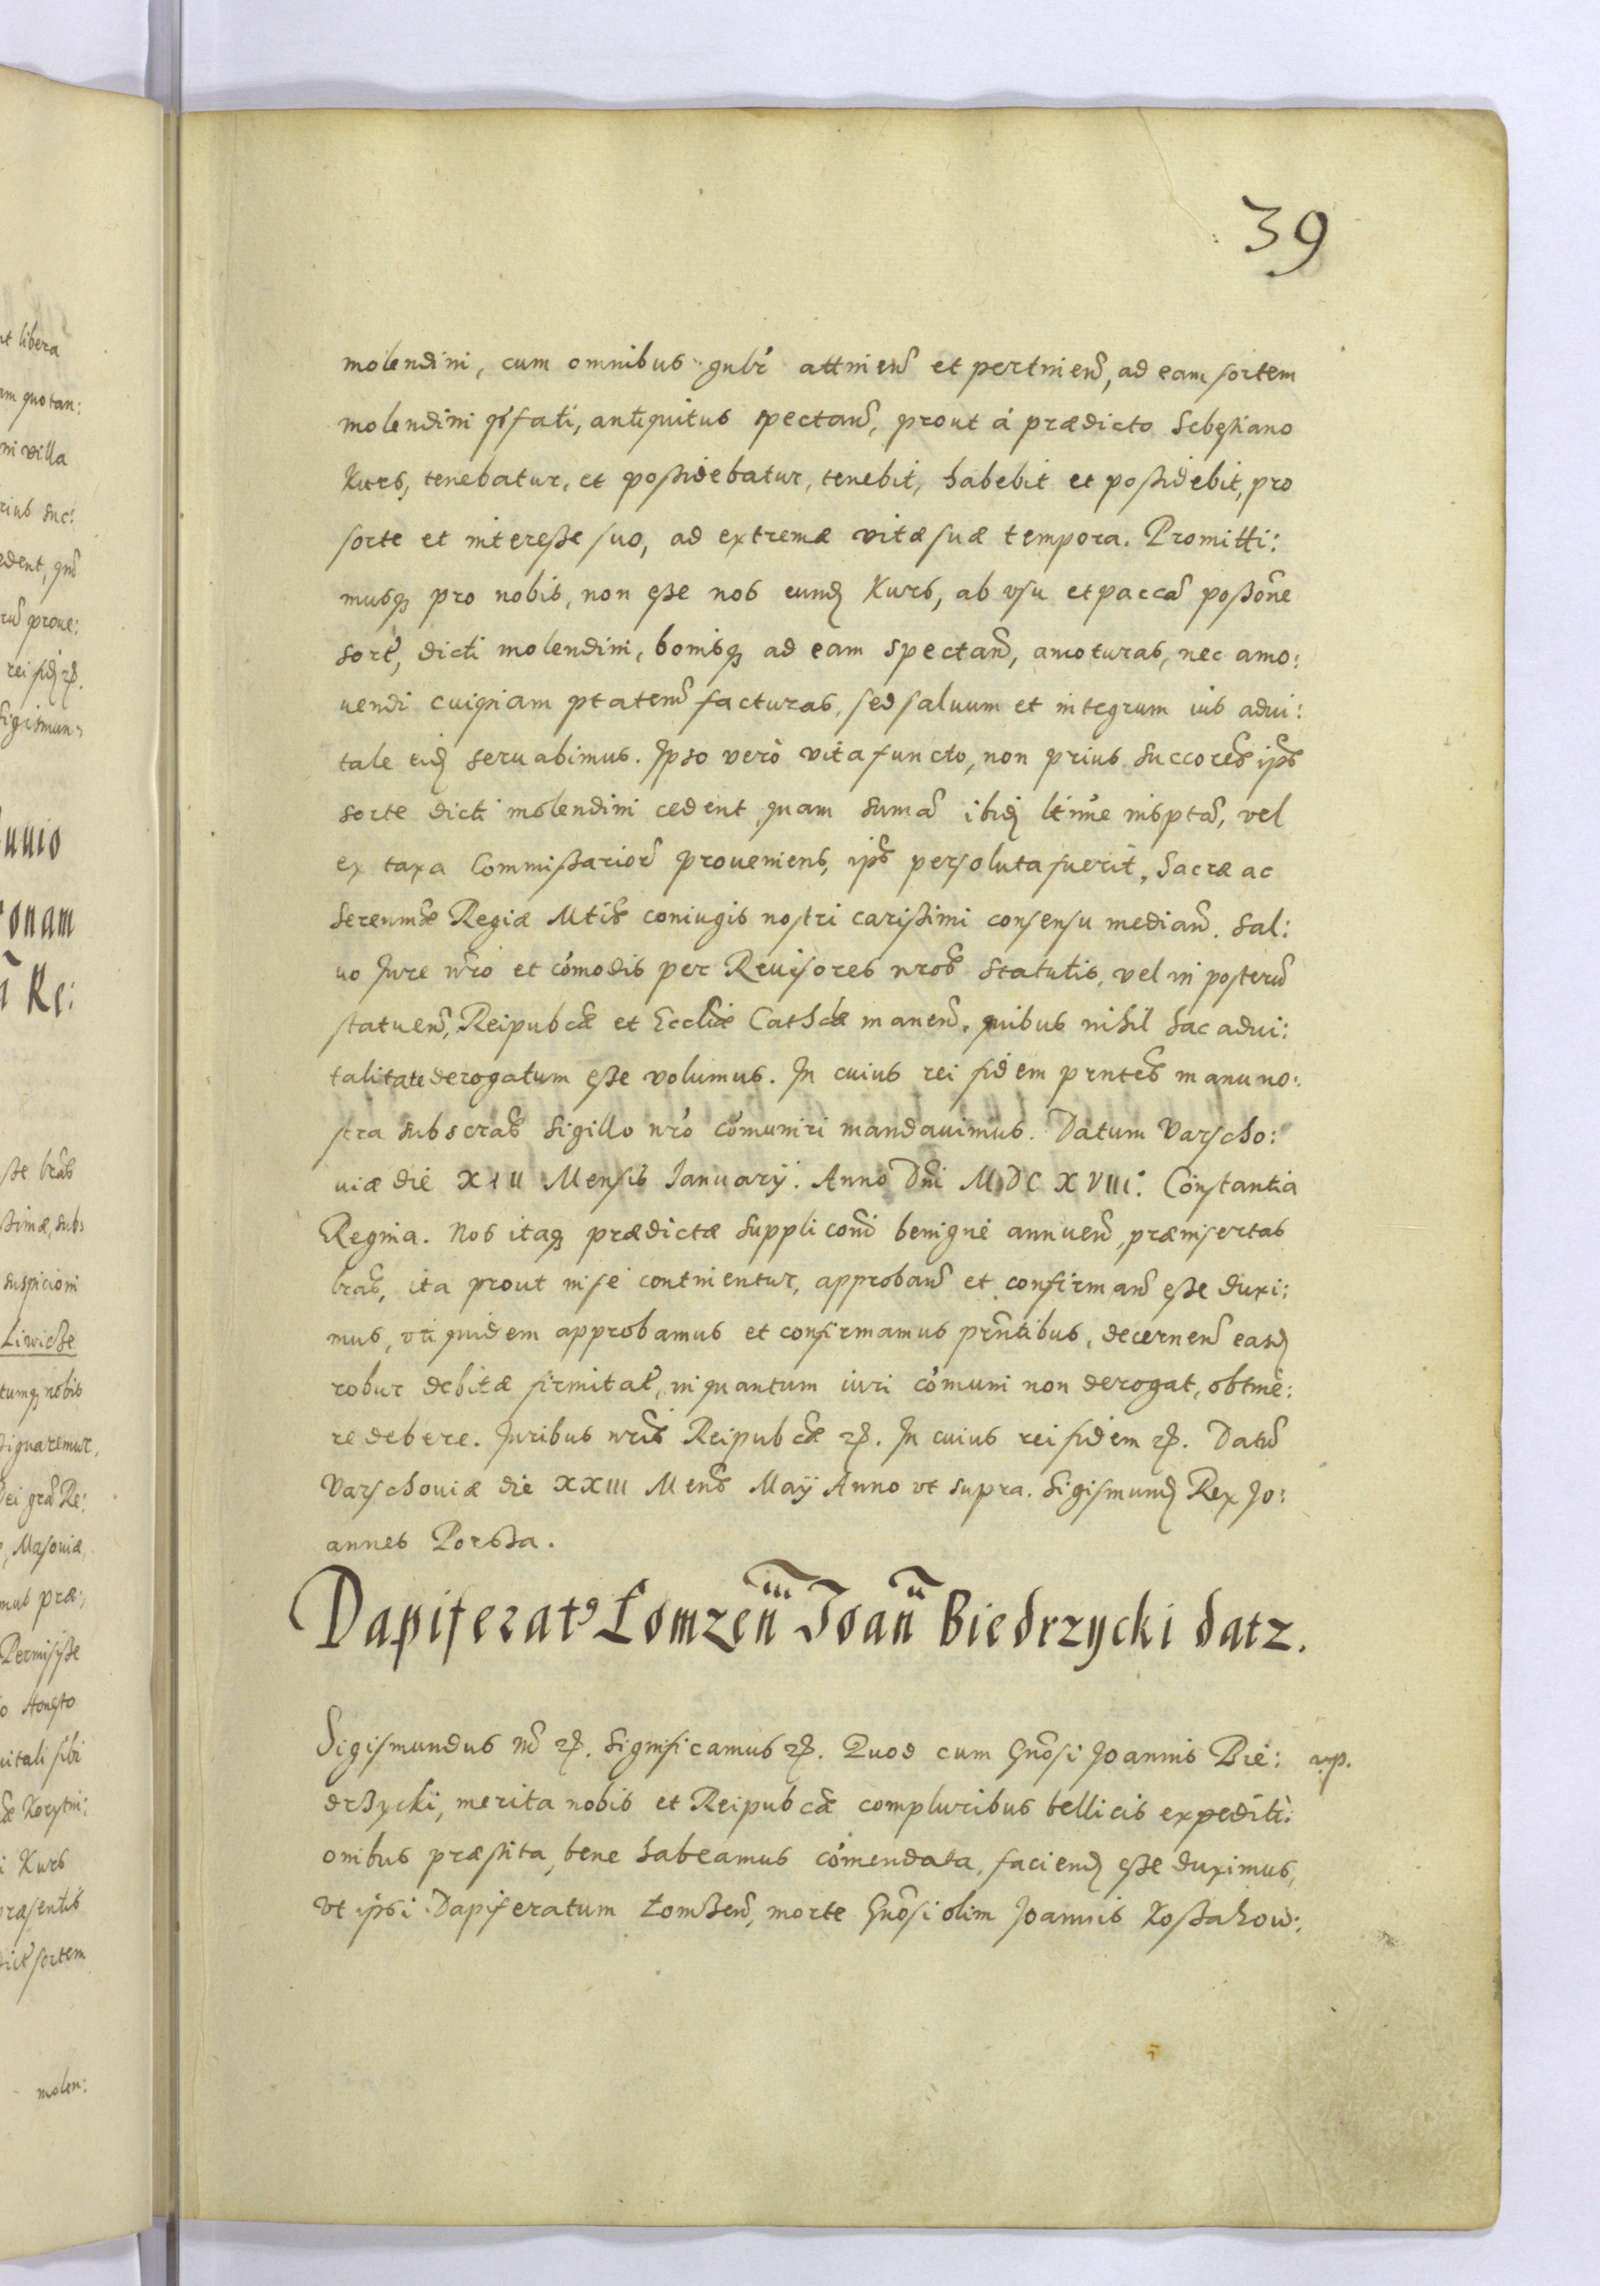 39
molendini, cum omnibus gnlr attinen et pertinen, ad eam sortem
molendini pfati, antiquitus spectan, prout á prædicto Sebestiano
Kurs, tenebatur, et possidebatur, tenebit, habebit et possidebit, pro
sorte et interesse suo, ad extremæ vitæ suæ tempora. Promitti:
musq pro nobis, non esse nos eund Kurs, ab vsu et paccā possone
sort, dicti molendini, bonisq ad eam spectan, amoturas, nec amo:
uendi cuipiam ptatem facturas, sed saluum et integrum ius adui:
tale eid seruabimus. Ipso verò vita functo, non prius succores ips
sorte dicti molendini cedent, quam summa ibid ltime inspta, vel
ex taxa Commissarior proueniens, ips persoluta fuerit, Sacræ ac
Serenmæ Regiæ Mtis coniugis nostri carissimi consensu median. Sal:
uo Jure nro et cómodis per Reuisores nros statutis, vel in posterū
statuen, Reipubcæ et Eccliæ Cathcæ manen. quibus nihil hac adui:
talitate derogatum esse volumus. In cuius rei fidem prntes manu no:
stra subscras Sigillo nro cómuniri mandauimus. Datum Varscho:
uiæ die XIII Mensis Ianuarij. Anno Dni MDCXVIII. Constantia
Regina. Nos itaq prædictæ suppliconi benigné annuen, præinsertas
lras, ita prout in se continentur, approban et confirman esse duxi:
mus, vti quidem approbamus et confirmamus prntibus, decernen easd
robur debitæ firmitat, in quantum iuri cómuni non derogat, obtine:
re debere. Juribus nris Reipubcæ etc. In cuius rei fidem etc. Datū
Varschouiæ die XXIII Mens Maij Anno vt supra. Sigismund Rex Jo:
annes Porssa.
Dapiferat9 Łomzen Joan Biedrzycki datz.
Sigismundus III etc. Significamus etc. Quod cum Gnosi Joannis Bie:
drzycki, merita nobis et Reipubcæ compluribus bellicis expediti:
onibus præstita, bene habeamus cómendata, faciend esse duximus,
vt ipsi Dapiferatum Łomzen, morte Gnosi olim Joannis Kossakow: